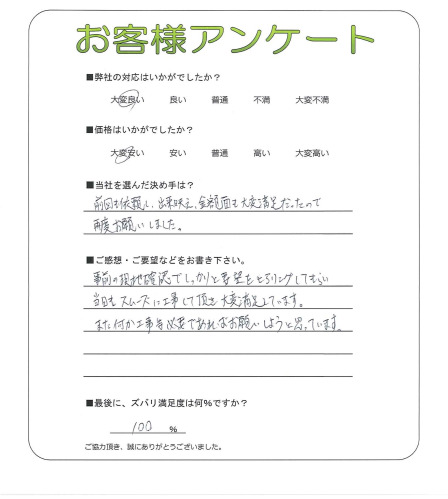 お客様アンケート
■弊社の対応はいかがでしたか?
大変良い 良い 普通 不満 大変不満
■価格はいかがでしたか?
大変安い 安い 普通 高い 大変高い
■当社を選んだ決め手は?
前回も依頼し、出来映え、金額面も大変満足だったので
再度お願いしました。
■ご感想・ご要望などをお書き下さい。
事前の現地確認でしっかりと要望をヒアリングしてもらい
当日もスムーズに工事して頂き大変満足しています。
また何か工事等必要であればお願いしようと思っています。
■最後に、ズバリ満足度は何%ですか?
100 %
ご協力頂き、誠にありがとうございました。